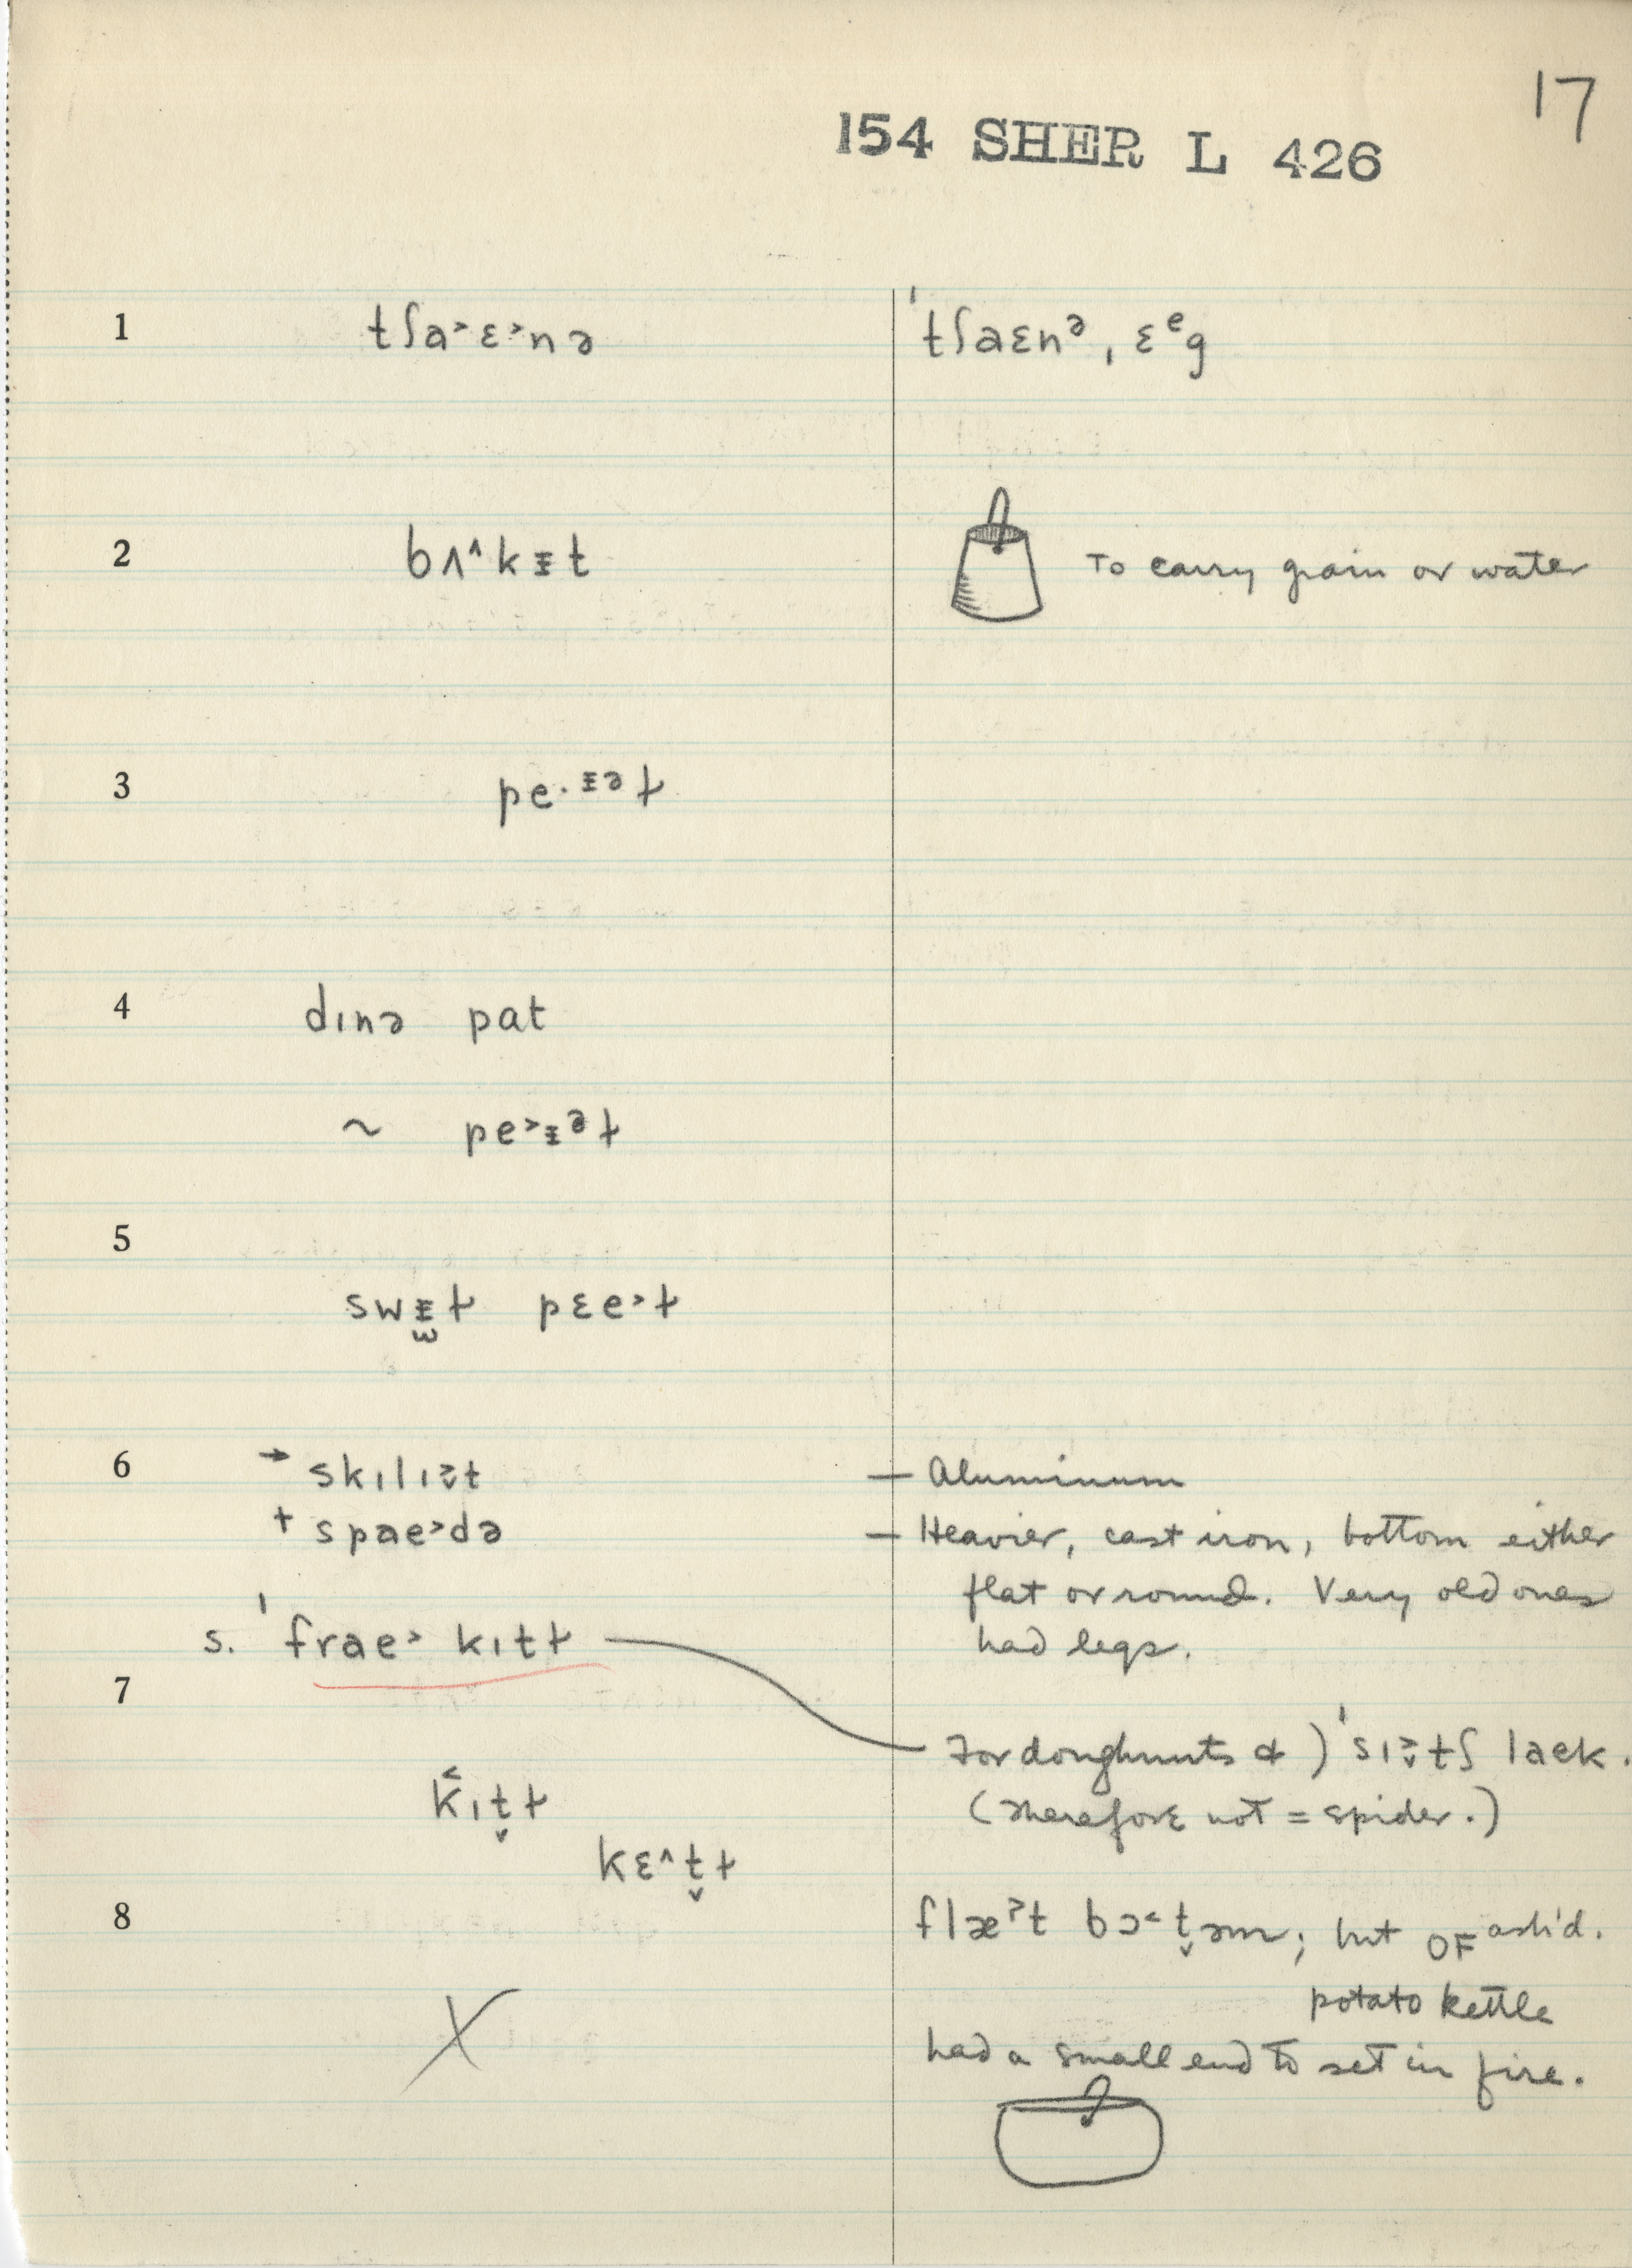 17
154 SHER L 426
1 tʃa˃ɛ˃nə ˈtʃaɛnᵊ, ɛᵉg
2 bʌ˄kɪt To carry grain or water
3 pe·ɪəɫ
4 dɪnə pat
~ pe˃ɪᵊɫ
5
swɪɫ pɛe˃ɫ
6 → skɪlɪt — Aluminum
+ spae˃də — Heavier, cast iron, bottom either
flat or round. Very old ones
s. ˈfrae˃ kɪtɫ had legs.
7
For doughnuts & ) ˈsɪtʃ laek.
k̂ɪt̬ɫ (Therefore not = spider.)
kɛ˄t̬ɫ
8 flæˀt bɔ˂t̬əm; but OF
potato kettle
had a small end to set in fire.
X